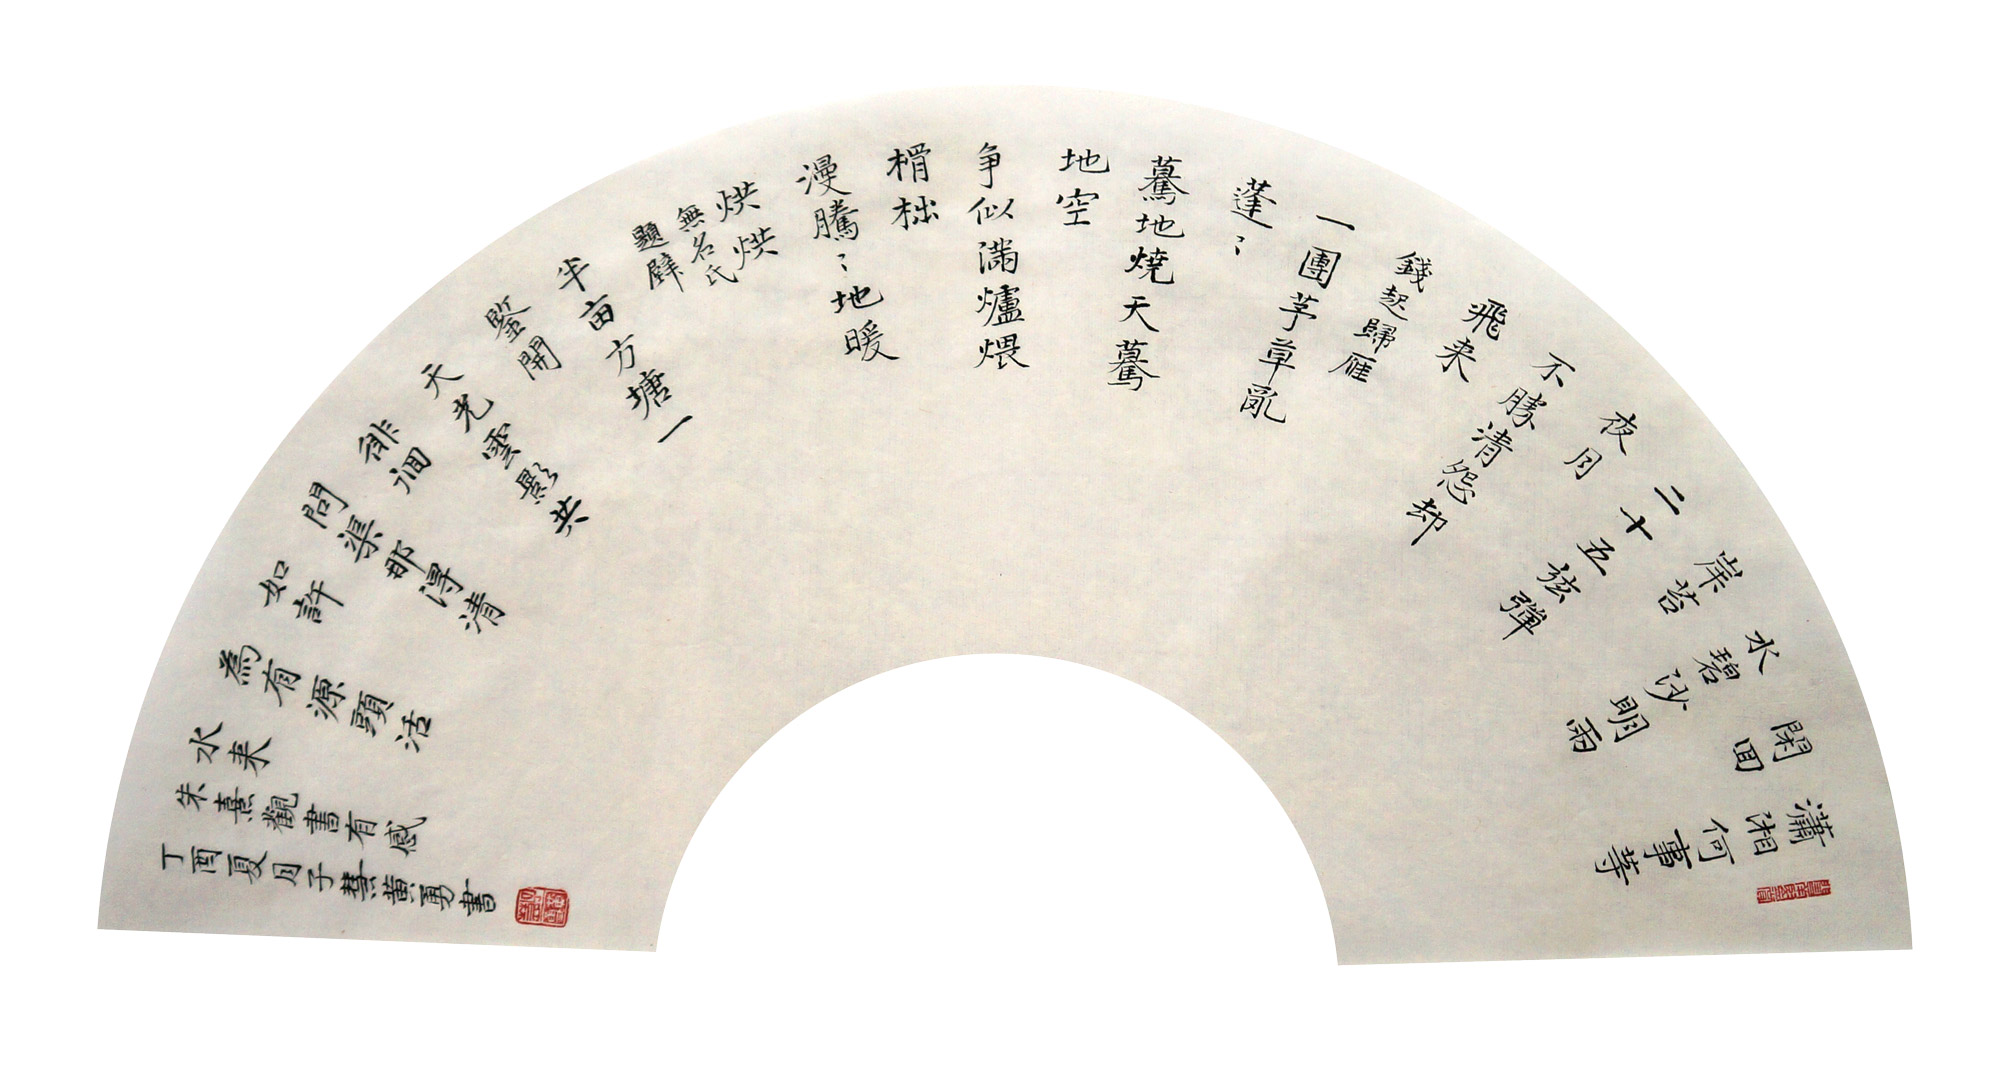 瀟湘何事等
閑回
水碧沙明雨
岸苔
二十五弦彈
夜月
不勝清怨却
飛来
錢起歸雁
一團茅草亂
蓬〻
驀地燒天驀
地空
争似滿爐煨
榾柮
漫騰〻地暖
烘烘
無名氏
題壁
半亩方塘一
鑒開
天光雲影共
徘徊
問渠那得清
如許
為有源頭活
水来
朱熹觀書有感
丁酉夏月子慧黄勇書